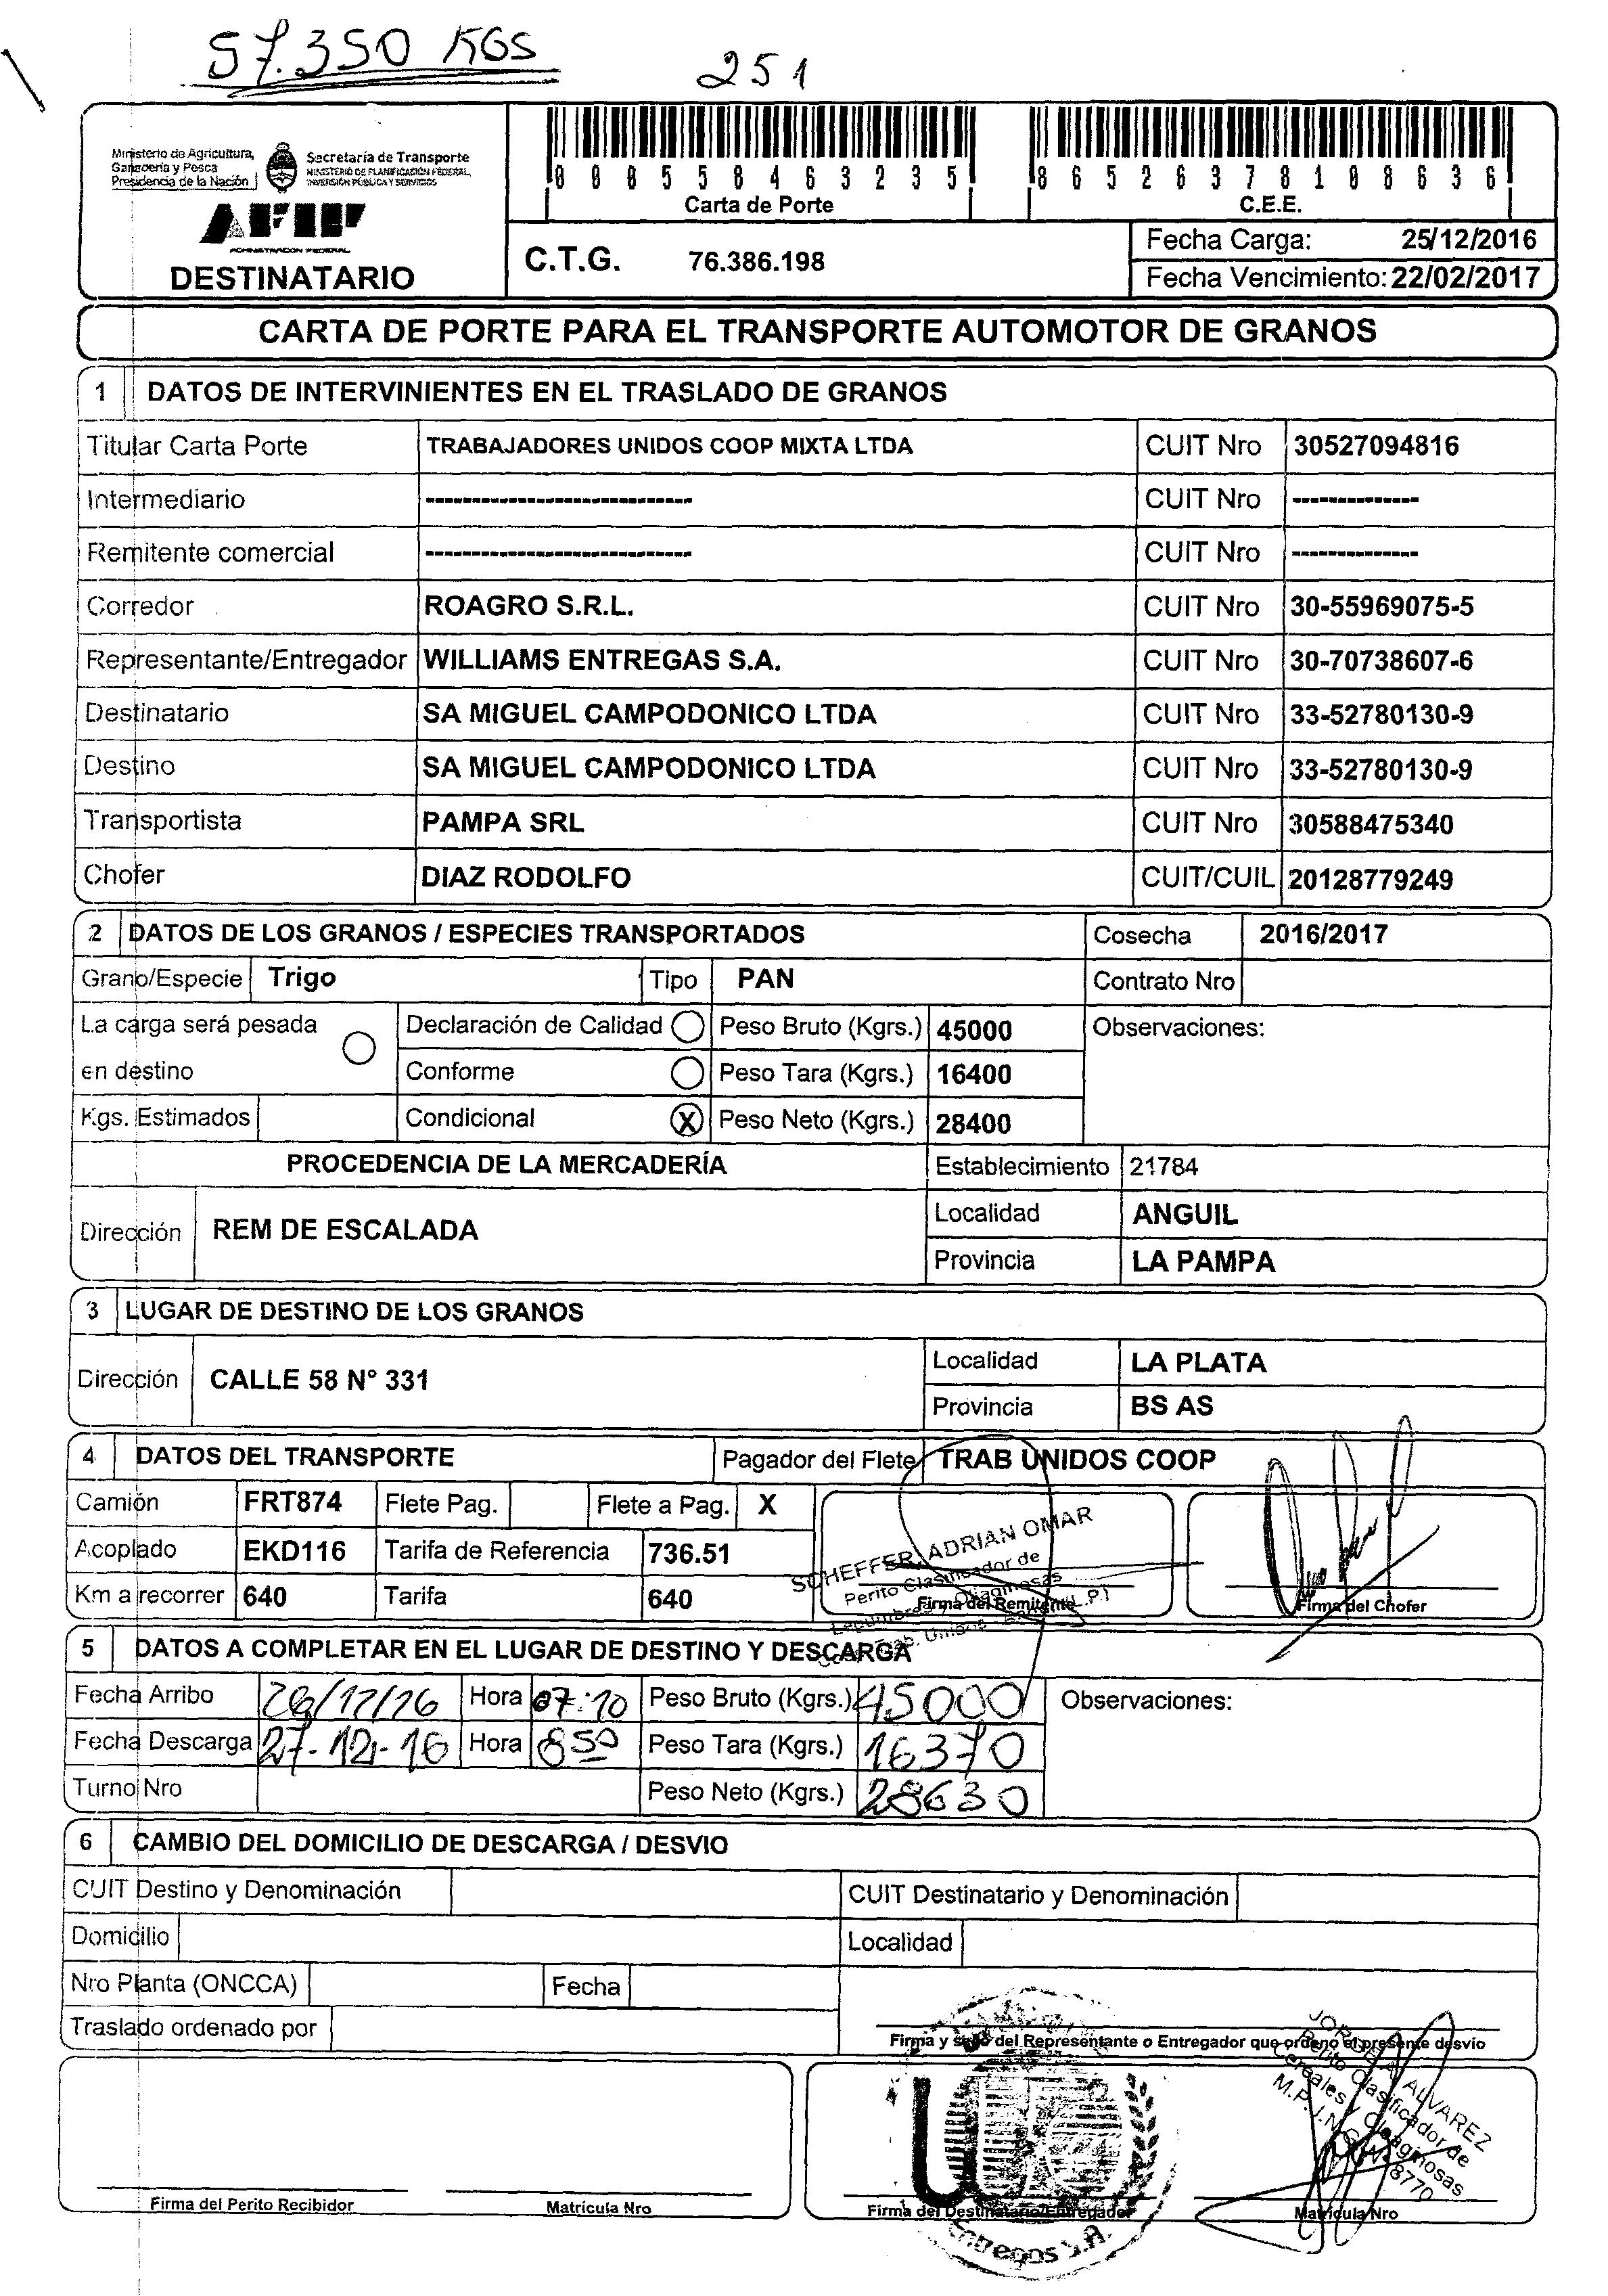 57.350 KGS
251
Ministerio de Agricultura,
Ganadería y Pesca
Presidencia de la Nación
Secretaría de Transporte
MINISTERIO DE PLANIFICACIÓN FEDERAL,
INVERSIÓN PÚBLICA Y SERVICIOS
AFIP
ADMINISTRACION FEDERAL
DESTINATARIO
000558463235
Carta de Porte
86526378108636
C.E.E.
C.T.G. 76.386.198
Fecha Carga: 25/12/2016
Fecha Vencimiento: 22/02/2017
CARTA DE PORTE PARA EL TRANSPORTE AUTOMOTOR DE GRANOS
1 DATOS DE INTERVINIENTES EN EL TRASLADO DE GRANOS
Titular Carta Porte TRABAJADORES UNIDOS COOP MIXTA LTDA CUIT Nro 30527094816
Intermediario ----------------------------- CUIT Nro --------------
Remitente comercial ----------------------------- CUIT Nro --------------
Corredor ROAGRO S.R.L. CUIT Nro 30-55969075-5
Representante/Entregador WILLIAMS ENTREGAS S.A. CUIT Nro 30-70738607-6
Destinatario SA MIGUEL CAMPODONICO LTDA CUIT Nro 33-52780130-9
Destino SA MIGUEL CAMPODONICO LTDA CUIT Nro 33-52780130-9
Transportista PAMPA SRL CUIT Nro 30588475340
Chofer DIAZ RODOLFO CUIT/CUIL 20128779249
2 DATOS DE LOS GRANOS / ESPECIES TRANSPORTADOS Cosecha 2016/2017
Grano/Especie Trigo Tipo PAN Contrato Nro
La carga será pesada Declaración de Calidad Peso Bruto (Kgrs.) 45000 Observaciones:
en destino Conforme Peso Tara (Kgrs.) 16400
Kgs. Estimados Condicional X Peso Neto (Kgrs.) 28400
PROCEDENCIA DE LA MERCADERÍA Establecimiento 21784
Dirección REM DE ESCALADA
Localidad ANGUIL
Provincia LA PAMPA
3 LUGAR DE DESTINO DE LOS GRANOS
Dirección CALLE 58 N° 331
Localidad LA PLATA
Provincia BS AS
4 DATOS DEL TRANSPORTE Pagador del Flete TRAB UNIDOS COOP
Camión FRT874 Flete Pag. Flete a Pag. X
Acoplado EKD116 Tarifa de Referencia 736.51
Km a recorrer 640 Tarifa 640
SCHEFFER, ADRIAN OMAR
Perito Clasificador de
Firma del Remitente
Firma del Chofer
5 DATOS A COMPLETAR EN EL LUGAR DE DESTINO Y DESCARGA
Fecha Arribo 26/12/16 Hora 07:10 Peso Bruto (Kgrs.) 45000 Observaciones:
Fecha Descarga 27-12-16 Hora 850 Peso Tara (Kgrs.) 16370
Turno Nro Peso Neto (Kgrs.) 28630
6 CAMBIO DEL DOMICILIO DE DESCARGA / DESVIO
CUIT Destino y Denominación CUIT Destinatario y Denominación
Domicilio Localidad
Nro Planta (ONCCA) Fecha
Traslado ordenado por
Firma y sello del Representante o Entregador que ordenó el presente desvío
ALVAREZ
Perito Clasificador de
Cereales y Oleaginosas
Firma del Perito Recibidor Matrícula Nro
Firma del Destinatario/Entregador Matrícula Nro
Entregas S.A.